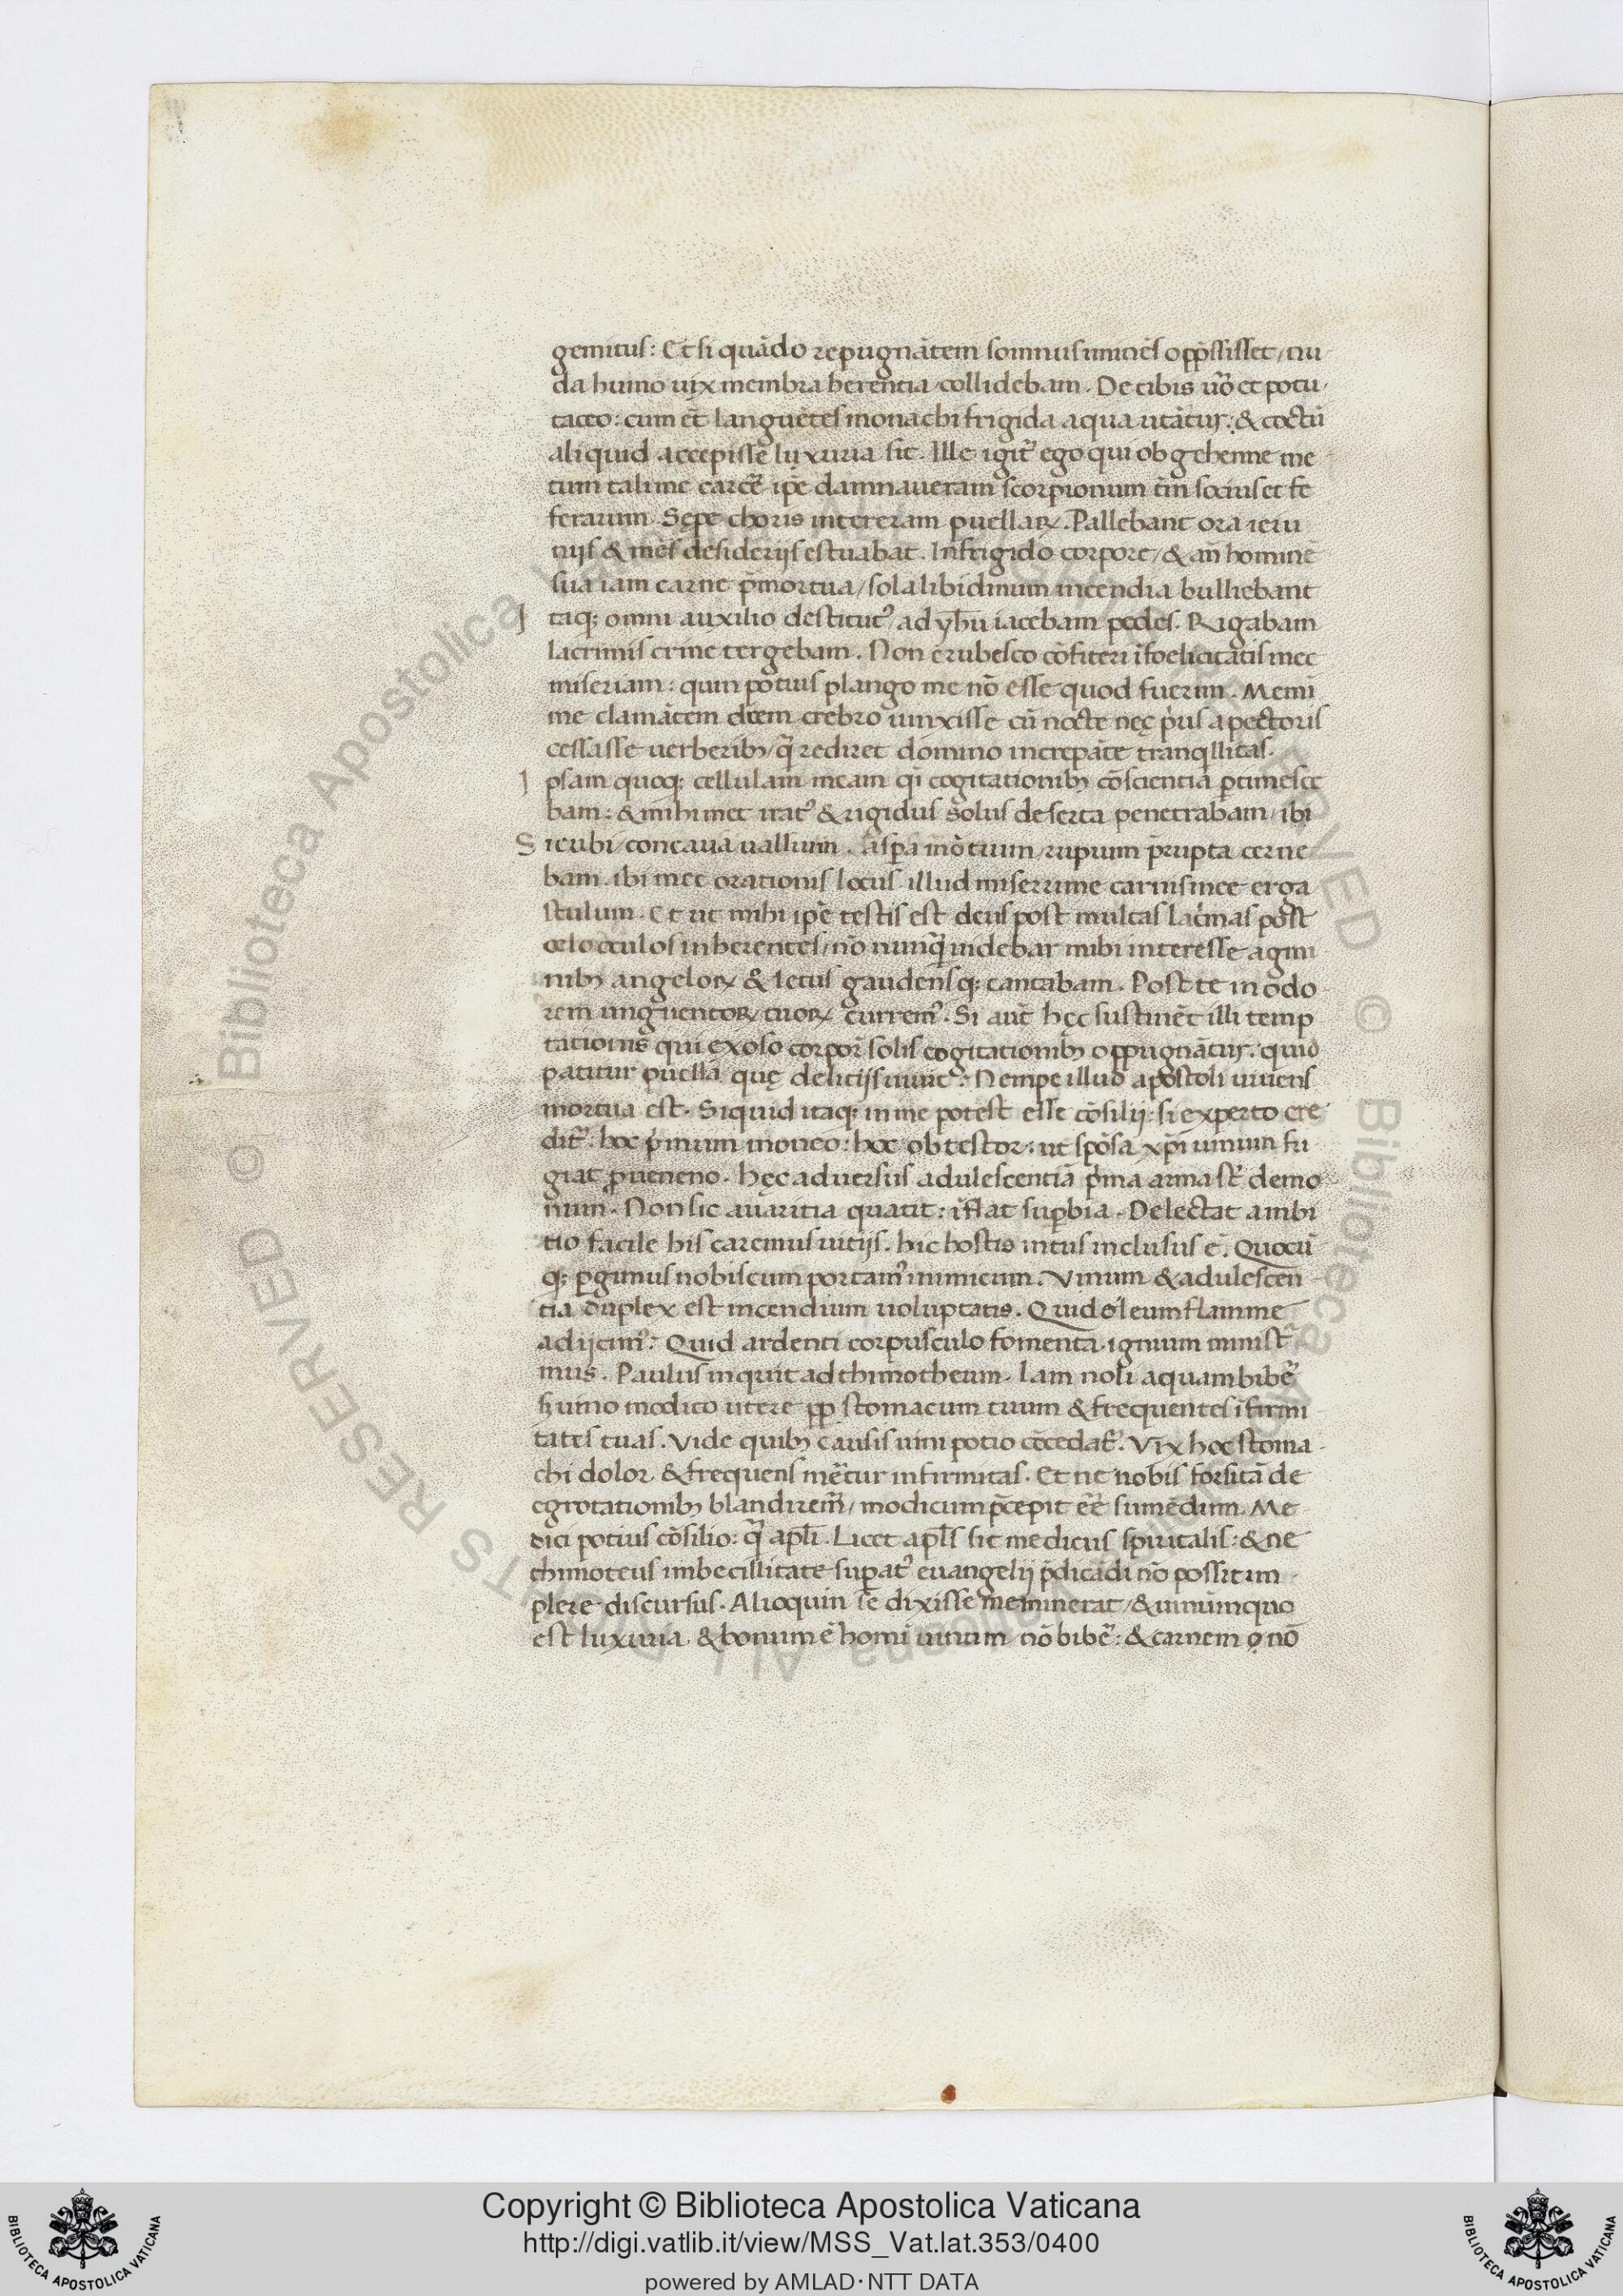 gemitus: Et si quādo repugnātem somnus iminēs opp̄ssisset / nu
da humo uix membra herentia / collidebam. De cibis ūo et potu
taceo: cum et̄ languētes monachi frigida aqua utātur: & coctū
aliquid accepisse luxuria sit. Ille igit᷑ ego qui ob gehenne me
tum tali me carcē ip̄e damnaueram scorpionum tm̄ socius et fe
ferarum. Sępe choris intereram puellaꝝ. Pallebant ora ieiu
nijs & mēs desiderijs estuabat. In frigido corpore / & an̄ hominē
sua iam carne p̄mortua / sola libidinum incendia bulliebant
I taq; omni auxilio destitut᷒ ad yh̄u iacebam pedes. Rigabam
lacrimis crine tergebam. Non erubesco cōfiteri īfoelicitatis mee
miseriam: quin potius plango me nō esse quod fuerim. Memi
me clamātem diem crebro iunxisse cū nocte nec p̄us a pectoris
cessasse uerberibꝫ / q̄ rediret domino increpāte tranqllitas.
I psam quoq; cellulam meam qi cogitationibꝫ cōscientiā ꝑtimesce
bam: & mihimet irat᷒ & rigidus solus deserta penetrabam / ibi
S icubi / concaua uallium. aspa mōtium / rupium p̄rupta cerne
bam. ibi mee orationis locus illud miserrime carnis mee erga
stulum. Et ut mihi ip̄e testis est deus post multas lacimas post
celo oculos inherentes / nō nunq̄ uidebar mihi interesse agmi
nibꝫ angeloꝝ & letus gaudensq; cantabam. Post te in odo
rem unguentoꝝ tuoꝝ currem᷒. Si aut̄ hęc sustinēt illi temp
tationis qui exoso corpor̄ solis cogitationibꝫ oppugnātur: quid
patitur puella quę delicijs uiuit? Nempe illud apostoli uiuens
mortua est. Si quid itaq; in me potest esse cōsilij: si experto cre
dit᷑. hoc p̄mum moneo: hoc obtestor: ut spōsa xp̄i uinum fu
giat ꝓ ueneno. hęc aduersus adulescentiā p̄ma arma st̄ demo
num. Non sic auaritia quatit: īflat suꝑbia. Delectat ambi
tio facile his caremus uitijs. hic hostis intus inclusus ē. Quocū
q; ꝑgimus nobiscum portam᷒ inimicum. Vinum & adulescen
tia duplex est incendium uoluptatis. Quid oleum flamme
adijcim᷒? Quid ardenti corpusculo fomenta ignium minist
mus. Paulus inquit ad thimotheum. Iam noli aquam bibē
sꝫ uino modico utere ꝓp̄ stomacum tuum & frequentes īfirmi
tates tuas. Vide quibꝫ causis uini potio cōcedat᷑. Vix hoc stoma
chi dolor & frequens mētur infirmitas. Et ne nobis forsitā de
egrotationibꝫ blandirem᷑ / modicum p̄cepit eē sumēdum. Me
dici potius cōsilio: q̄ apl̄i. Licet apl̄s sit medicus spiritalis: & ne
thimoteus imbecillitate suꝑat᷒ euangelij p̄dicādi nō possit im
plere discursus. Alioquin se dixisse meminerat / & uinum quo
est luxuria. & bonum ē homī uinum nō bibē: & carnem ꝙ nō
Copyright © Biblioteca Apostolica Vaticana
http://digi.vatlib.it/view/MSS_Vat.lat.353/0400
powered by AMLAD·NTT DATA